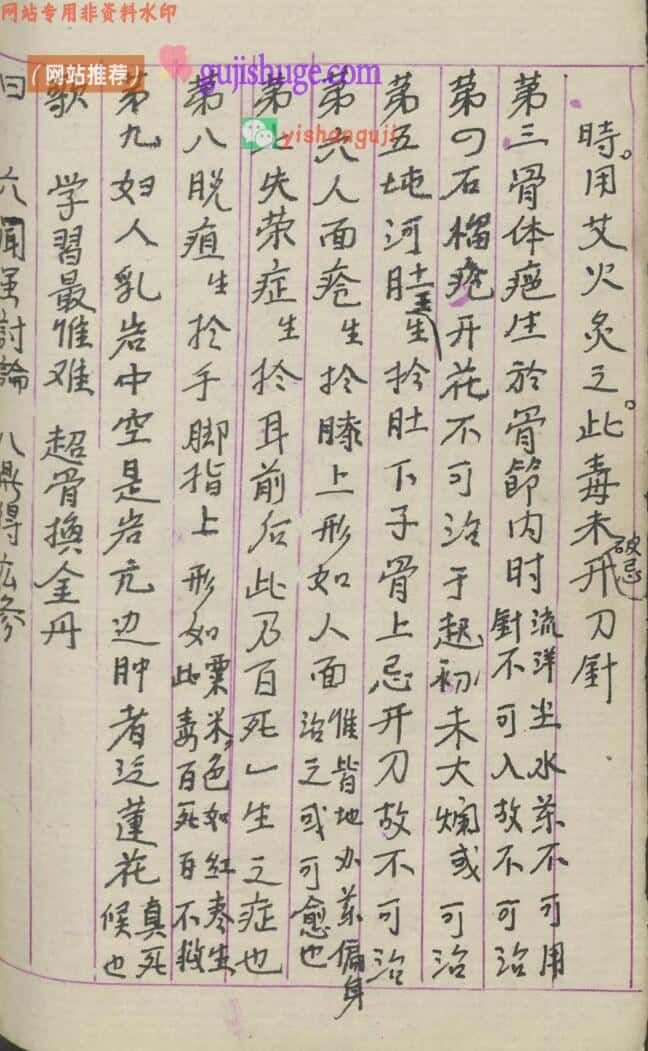 网站专用非资料水印
(网站推荐)
gujishuge.com
yishanguji
時。用艾火炙之。此毒未开刀針
破忌
第三骨体疤生於骨節内时流洋尘水茶不可用
針不可入故不可治
第四石榴疮开花不可治于起初未大烂或可治
第五地河肚生扵肚下子骨上忌开刀故不可治
第六人面疮生扵膝上形如人面惟皆地办茶偏身
治之或可愈也
第七失荣症生扵耳前后此乃百死一生之症也
第八脱疽生扵手脚指上形如粟米色如红枣生
此毒百死百不救
第九妇人乳岩中空是岩亢边肿者泛蓮花真死
候也
歌 学習最惟难 超骨換金丹
曰 六聞虽討論 八